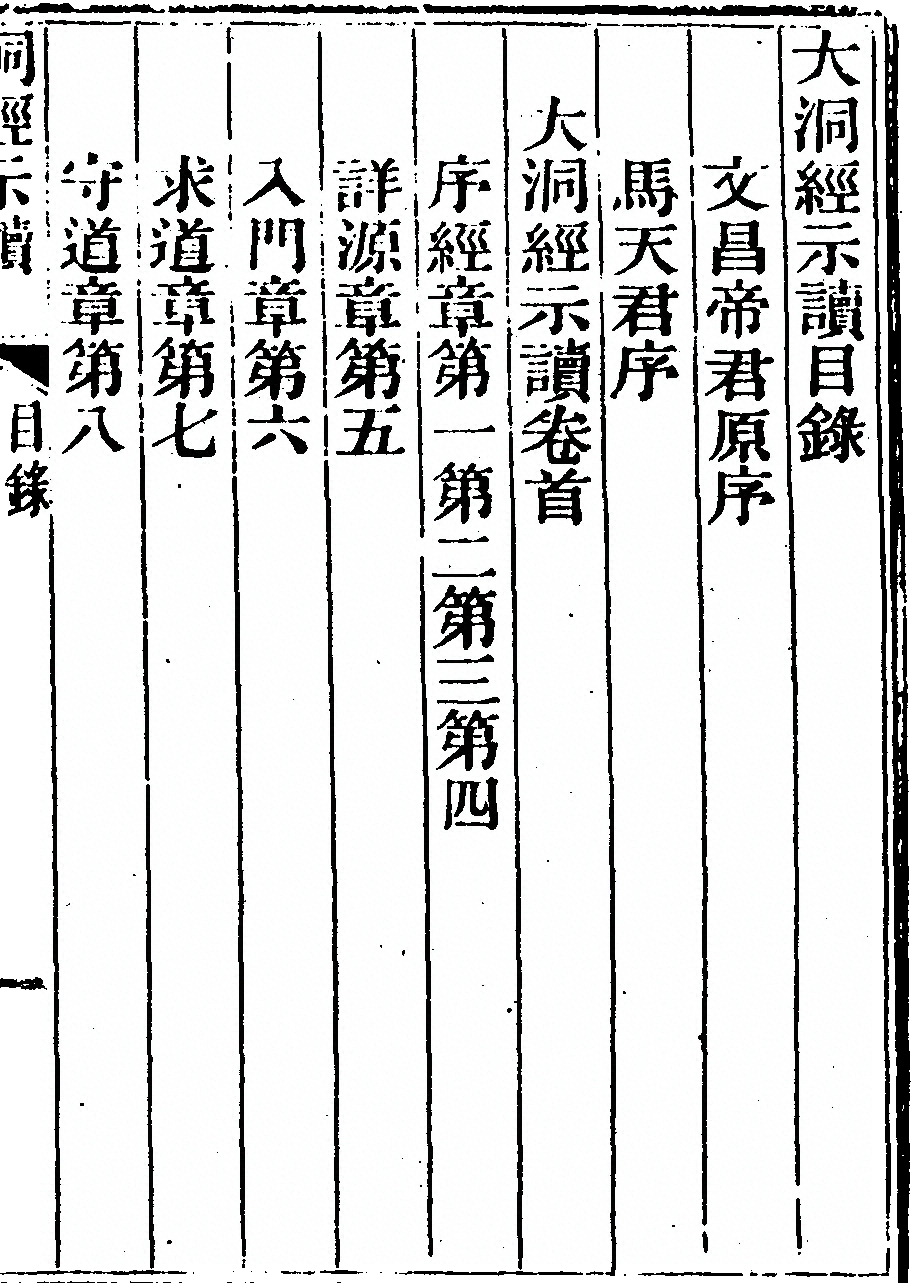 大洞經示讀目錄
文昌帝君原序
馬天君序
大洞經示讀卷首
序經章第一第二第三第四
詳源章第五
入門章第六
求道章第七
守道章第八
洞經示讀 目錄 一